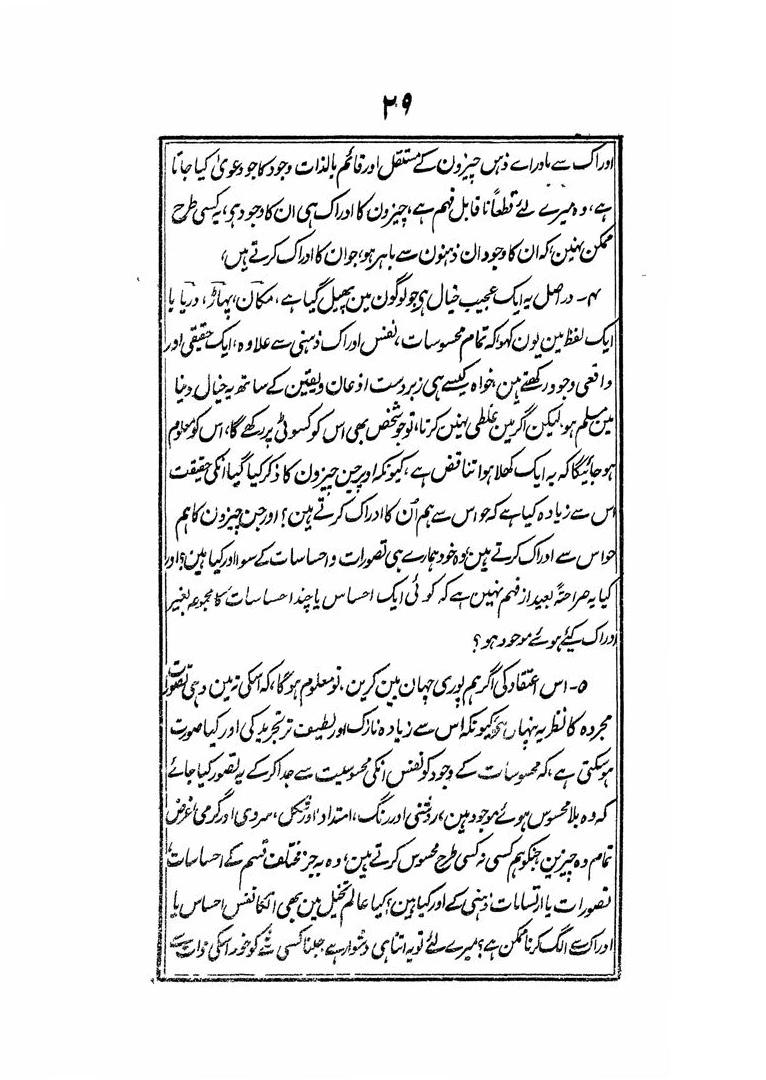 ۲۹
ادراک سے ماوراے ذہن چیزون کے مستقل اور قائم بالذات وجود کا جو دعویٰ کیا جاتا
ہے، وہ میرے لئے قطعاً ناقابل فہم ہے، چیزون کا ادراک ہی ان کا وجود ہو، یہ کسی طرح
ممکن نہین، کہ ان کا وجود ان ذہنون سے باہر ہو، جو ان کا ادراک کرتے ہین،
۴- دراصل یہ ایک عجیب خیال ہو جو لوگون مین پھیل گیا ہے، مکان، پہاڑ، دریا یا
ایک لفظ مین یون کہو کہ تمام محسوسات، نفس ادراک ذہنی سے علاوہ، ایک حقیقی اور
واقعی وجود رکھتے ہین، خواہ کیسے ہی زبردست اذعان و یقین کے ساتھ یہ خیال دنیا
مین مسلم ہو، لیکن اگر مین غلطی نہین کرتا، تو جو شخص بھی اس کو کسوٹی پر رکھے گا، اس کو معلوم
ہو جائیگا کہ یہ ایک کھلا ہوا تناقض ہے، کیونکہ اوپر جن چیزون کا ذکر کیا گیا، انکی حقیقت
اس سے زیادہ کیا ہے کہ حواس سے ہم اُن کا ادراک کرتے ہین؟ اور جن چیزون کا ہم
حواس سے ادراک کرتے ہین، وہ خود ہمارے ہی تصورات و احساسات کے سوا اور کیا ہین؟ اور
کیا یہ صراحتہً بعید از فہم نہین ہے کہ کوئی ایک احساس یا چند احساسات کا مجموعہ بغیر
ادراک کئے ہوئے موجود ہو؟
۵- اس اعتقاد کی اگر ہم پوری چھان بین کرین، تو معلوم ہوگا، کہ اسکی تہ مین وہی تصورات
مجردہ کا نظریہ پنہان ہی، کیونکہ اس سے زیادہ نازک اور لطیف تر تجرید کی اور کیا صورت
ہوسکتی ہے، کہ محسوسات کے وجود کو نفس انکی محسوسیت سے جدا کرکے یہ تصور کیا جائے
کہ وہ بلا محسوس ہوئے موجود ہین، روشنی اور رنگ، امتداد اور شکل، سردی اور گرمی، غرض
تمام وہ چیزین جنکو ہم کسی نہ کسی طرح محسوس کرتے ہین، وہ بہ جز مختلف قسم کے احساسات،
تصورات یا ارتسامات ذہنی کے اور کیا ہین؟ کیا عالم تخیل مین بھی انکا نفس احساس یا
ادراک سے الگ کرنا ممکن ہے؟ میرے لئے تو یہ اتنا ہی دشوار ہے، جتنا کسی شے کو خود اسکی ذات سے